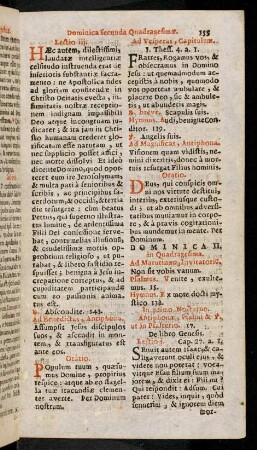 Dominica secunda Quadragesimæ. 155
Lectio iij.
HÆc autem, dilectissimi,
laudatæ intelligentiæ
celsitudo instruenda erat de
inferioris substantiæ sacra-
mento: ne Apostolica fides
ad gloriam confitendæ in
Christo Deitatis evecta, in-
firmitatis nostræ receptio-
nem indignam impassibili
Deo atque incongruam ju-
dicaret, & ita jam in Chri-
sto humanam crederet glo-
rificatam esse naturam, ut
nec supplicio posset affici,
nec morte dissolvi. Et ideò
dicente Domino, quòd opor-
teret eum ire Jerosolymam, &
multa pati à senioribus &
Scribis, ac principibus
sacerdotum, & occidi, & tertia
die resurgere: cùm beatus
Petrus, qui superno illustra-
tus lumine, de ardentissima
Filii Dei confessione ferve-
bat, contumelias illusio-
num, & crudelissimæ mortis
opprobrium religioso, ut pu-
tabat, & libero fastidio
respuisset, benigna à Jesu in-
crepatione correptus, & ad
cupiditatem participandæ
cum eo passionis anima-
tus est.
℟. Abscondite. 143.
Ad Benedictus, Antiphona.
Assumpsit Jesus discipulos
suos, & ascendit in mon-
tem, & transfiguratus est
ante eos.
Oratio.
POpulum tuum, quæsu-
mus Domine, propitius
respice: atque ab eo flagel-
la tuæ iracundiæ clemen-
ter averte. Per Dominum
nostrum.
Ad Vesperas, Capitulum.
1. Thess. 4. a. 1.
FRatres, Rogamus vos, &
obsecramus in Domino
Jesu: ut quemadmodum ac-
cepistis à nobis, quomodo
vos oporteat ambulare, &
placere Deo, sic & ambule-
tis, ut abundetis magis.
℟. breve, Scapulis suis.
Hymnus, Audi, benigne Condi-
tor. 139.
℣. Angelis suis.
Ad Magnificat, Antiphona.
Visionem quam vidistis, ne-
mini dixeritis, donec à mor-
tuis resurgat Filius hominis.
Oratio.
DEus, qui conspicis om-
ni nos virtute destitui;
interiùs, exteriúsque custo-
di: ut ab omnibus adversi-
tatibus muniamur in corpo-
re, & à pravis cogitationi-
bus mundemur in mente. Per
Dominum.
DOMINICA II.
in Quadragesima.
Ad Matutinum, Invitatoriū,
Non sit vobis vanum.
Psalmus. Venite, exulte-
mus. 15.
Hymnus, Ex more docti my-
stico. 138.
In primo Nocturno,
Antiphonæ, Psalmi, & ℣.
ut in Psalterio. 17.
De libro Genesis.
Lectio j. Cap. 27. a. 1.
SEnuit autem Isaac, & ca-
ligaverunt oculi ejus, &
videre non poterat: voca-
vitque Esau filium suum ma-
jorem, & dixit ei: Fili mi?
Qui respondit: Adsum. Cui
pater: Vides, inquit, quòd
senuerim, & ignorem diem
mor-